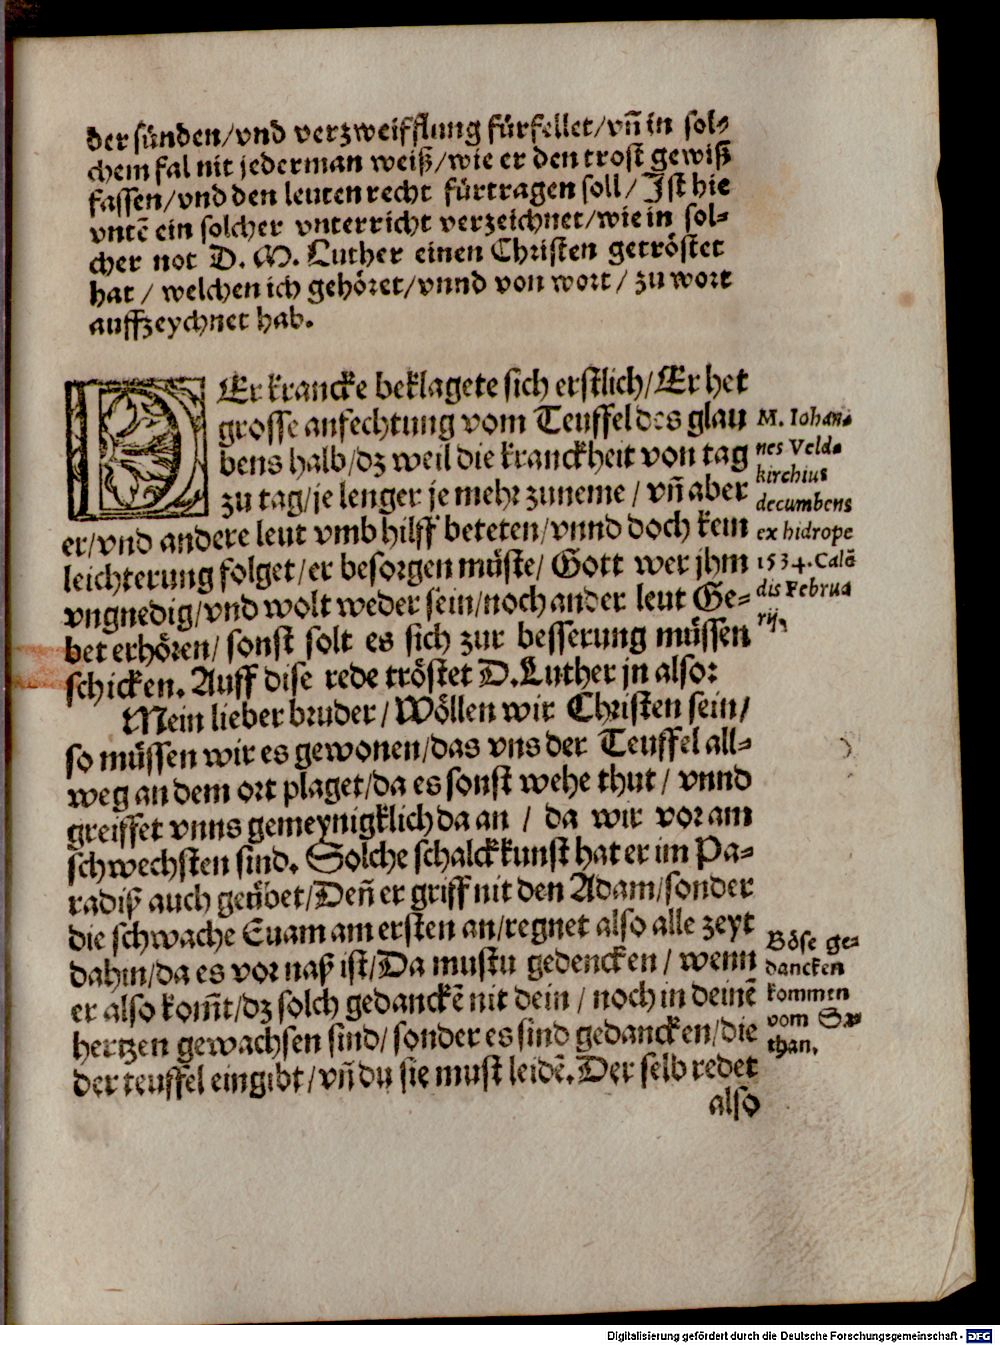 der sünden/vnd verzweifflung fürfellet/vñ in sol⸗
chem fal nit jederman weiß/wie er den trost gewiß
fassen/vnd den leuten recht fürtragen soll/ Ist hie
vntē ein solcher vnterricht verzeichnet/wie in sol⸗
cher not D. M. Luther einen Christen getröstet
hat / welchen ich gehöret/vnnd von wort / zu wort
auffzeychnet hab.
DEr krancke beklagete sich erstlich/Er het
grosse anfechtung vom Teuffel des glau
bens halb/dz weil die kranckheit von tag
zu tag/je lenger je mehr zuneme / vñ aber
er/vnd andere leut vmb hilff beteten/vnnd doch kein
leichterung folget/er besorgen müste/ Gott wer jhm
vngnedig/vnd wolt weder sein/noch ander leut Ge⸗
bet erhören/ sonst solt es sich zur besserung müssen
schicken. Auff dise rede tröstet D.Luther jn also:
M. Iohan⸗
nes Veld⸗
kirchius
decumbens
ex hidrope
1534. Calē
dis Februa
rij,
Mein lieber bruder / Wöllen wir Christen sein/
so müssen wir es gewonen/das vns der Teuffel all⸗
weg an dem ort plaget/da es sonst wehe thut / vnnd
greiffet vnns gemeynigklich da an / da wir vor am
schwechsten sind. Solche schalckkunst hat er im Pa⸗
radiß auch geübet/Deñ er griff nit den Adam/sonder
die schwache Euam am ersten an/regnet also alle zeyt
dahin/da es vor naß ist/Da mustu gedencken / wenn
er also kom̄t/dz solch gedanckē nit dein / noch in deinē
hertzen gewachsen sind/ sonder es sind gedancken/die
der teuffel eingibt/vñ du sie must leidē. Der selb redet
Böse ge⸗
dancken
kommen
vom Sa⸗
than.
also
Digitalisierung gefördert durch die Deutsche Forschungsgemeinschaft - DFG